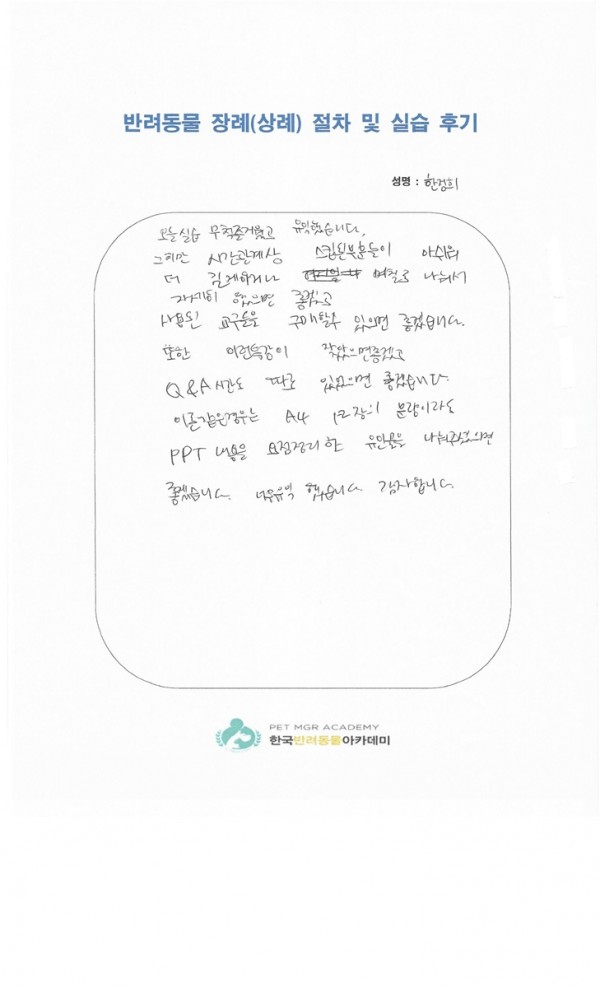 반려동물 장례(상례) 절차 및 실습 후기
성명 : 한정희
오늘실습 무척즐거웠고 유익했습니다.
그러면 시간관계상 스킵된부분들이 아쉬워
더 길게하거나 며칠로 나눠서
자세히 했으면 좋겠고
사용된 교구들을 구매할수 있으면 좋겠습니다.
또한 이런특강이 잦았으면좋겠고
Q&A시간도 따로 있었으면 좋겠습니다.
이론같은경우는 A4 1~2장의 분량이라도
PPT 내용을 요점정리한 유인물을 나눠주셨으면
좋겠습니다. 너무유익 했습니다. 감사합니다.
PET MGR ACADEMY
한국반려동물아카데미